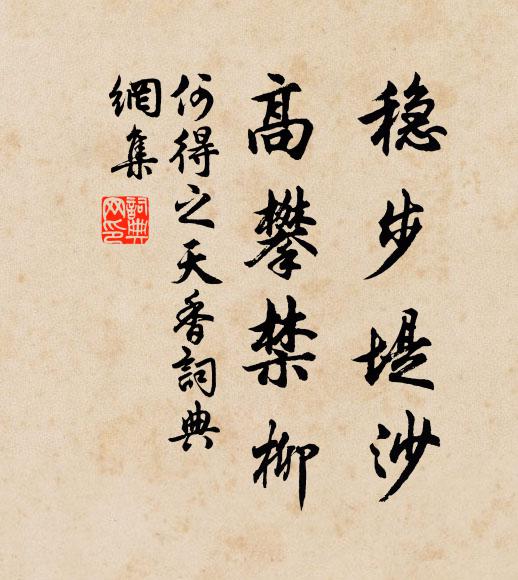 稳步堤沙
高攀禁柳
何得之天香詞典
網集
詞典
网印